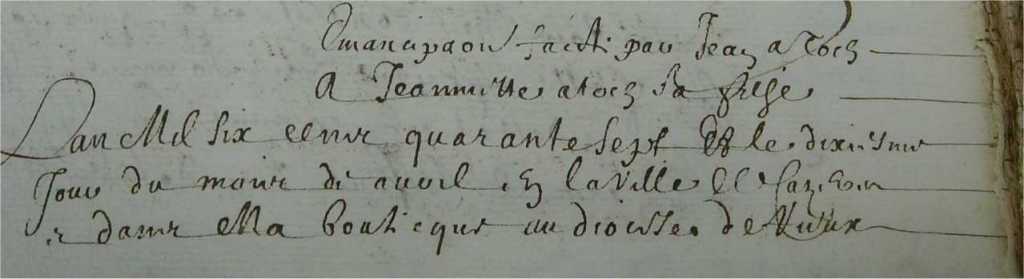 Emancipaon faicte par Jean atoch
A Jeannette atoch sa filhe
Lan Mil six cens quarante sept Et le dixiesme
Jour du mois de auril en la Ville
dans Ma boutique au diocese de Rieux